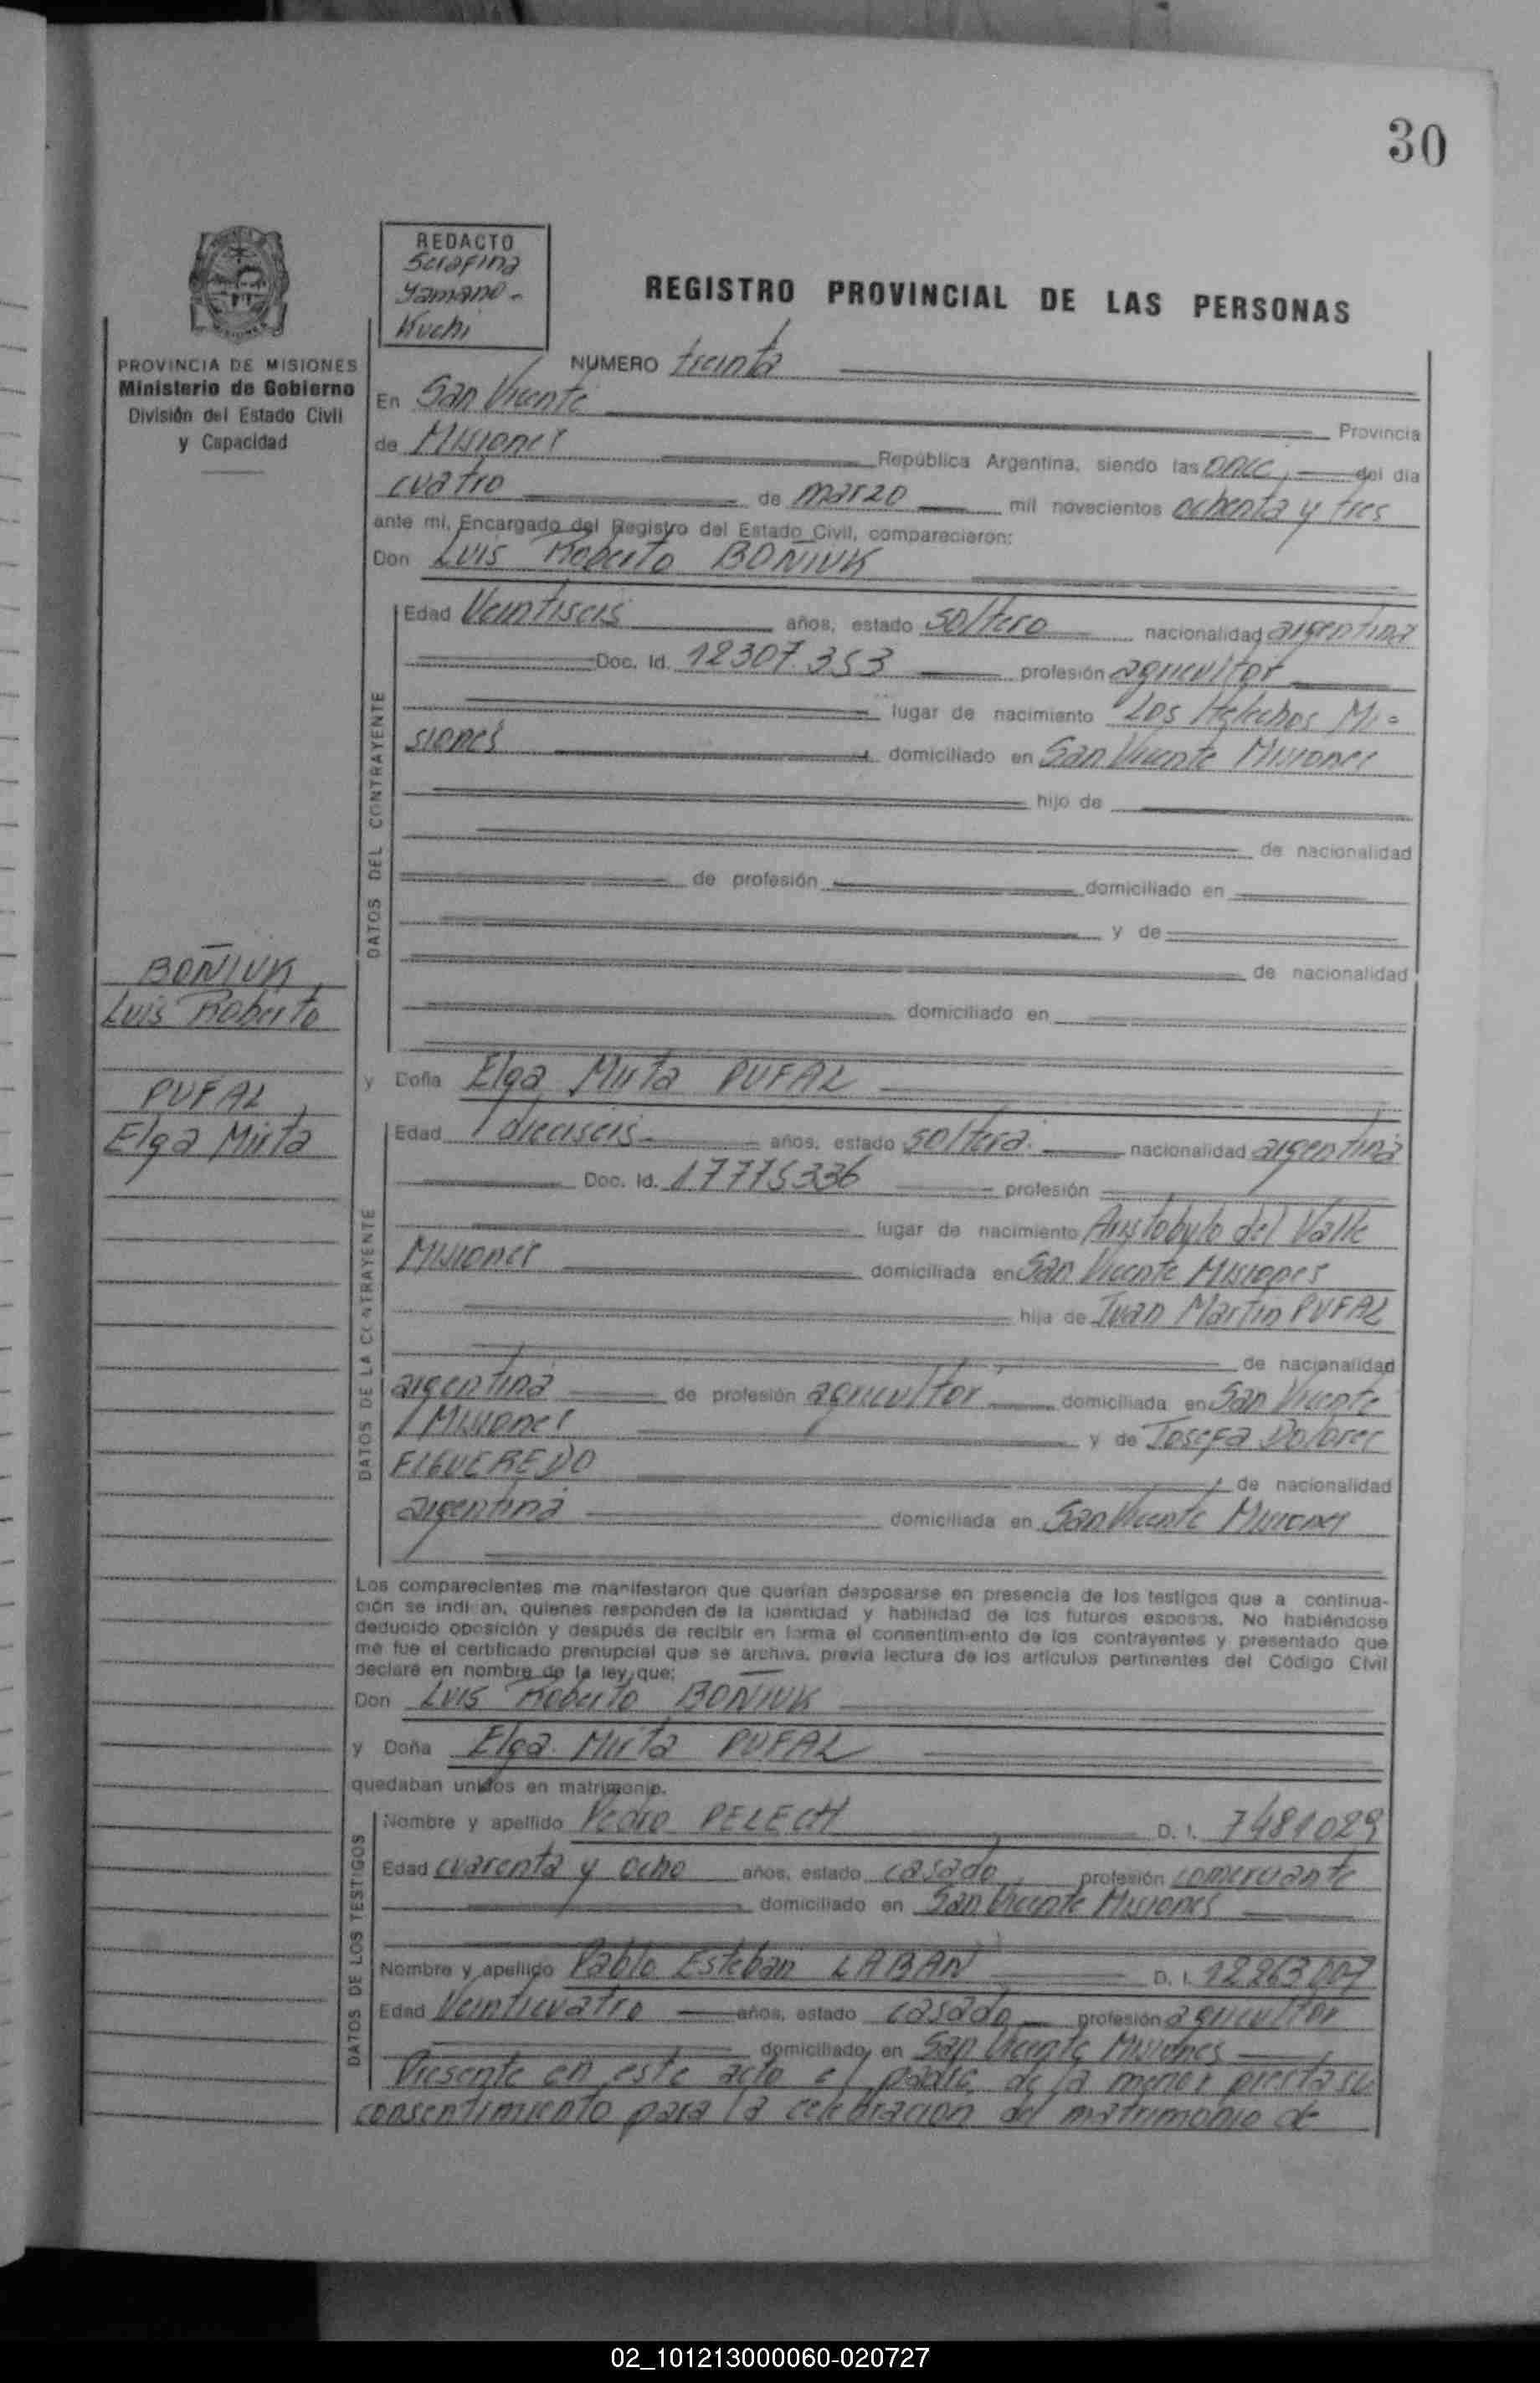 30
REDACTO
Serafina
Yamano-
Kuchi
REGISTRO PROVINCIAL DE LAS PERSONAS
PROVINCIA DE MISIONES
Ministerio de Gobierno
División del Estado Civil
y Capacidad
NUMERO treinta
En San Vicente Provincia
de Misiones República Argentina, siendo las once, del día
cuatro de marzo mil novecientos ochenta y tres
ante mí, Encargado del Registro del Estado Civil, comparecieron:
Don Luis Roberto BOÑIUK
DATOS DEL CONTRAYENTE
Edad Veintiseis años, estado soltero nacionalidad argentina
Doc. Id. 12307.353 profesión agricultor
lugar de nacimiento Los Helechos Mi=
siones domiciliado en San Vicente Misiones
hijo de
de nacionalidad
de profesión domiciliado en
y de
de nacionalidad
domiciliado en
BOÑIUK,
Luis Roberto
PUFAL,
Elga Mirta
y Doña Elga Mirta PUFAL
DATOS DE LA CONTRAYENTE
Edad dieciseis años, estado soltera nacionalidad argentina
Doc. Id. 17775336 profesión
lugar de nacimiento Aristobulo del Valle
Misiones domiciliada en San Vicente Misiones
hija de Juan Martin PUFAL
de nacionalidad
argentina de profesión agricultor domiciliada en San Vicente
Misiones y de Josefa Dolores
FIGUEREDO, de nacionalidad
argentina domiciliada en San Vicente Misiones
Los comparecientes me manifestaron que querían desposarse en presencia de los testigos que a continua-
ción se indi an, quienes responden de la identidad y habilidad de los futuros esposos. No habiéndose
deducido oposición y después de recibir en forma el consentimiento de los contrayentes y presentado que
me fue el certificado prenupcial que se archiva, previa lectura de los artículos pertinentes del Código Civil
declaré en nombre de la ley, que:
Don Luis Roberto BOÑIUK
y Doña Elga Mirta PUFAL
quedaban unidos en matrimonio.
DATOS DE LOS TESTIGOS
Nombre y apellido Pedro PELECH D. I. 7481029
Edad cuarenta y ocho años, estado casado, profesión comerciante
domiciliado en San Vicente Misiones
Nombre y apellido Pablo Esteban LABAN D. I. 12263007
Edad Veinticuatro años, estado casado profesión agricultor
domiciliado en San Vicente Misiones
Presente en este acto el padre de la menor presta su
consentimiento para la celebracion del matrimonio de
02_101213000060-020727